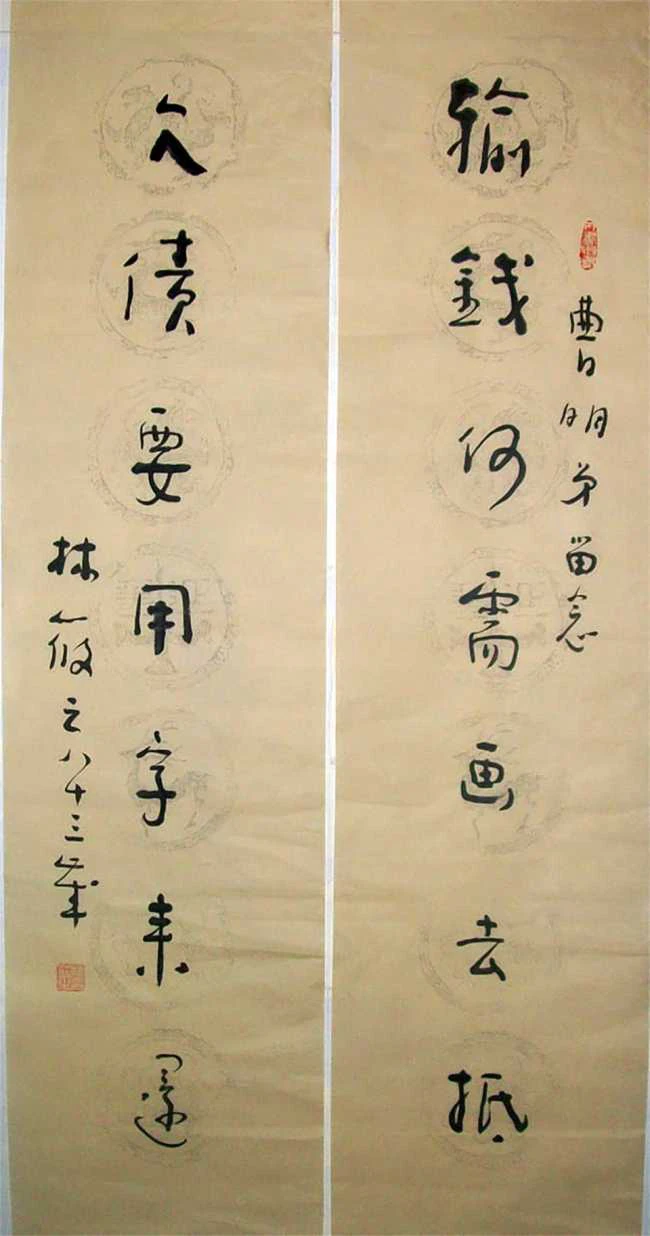 曹明弟留念
輸錢何需画去抵
欠債要用字来還
林筱之八十三歲